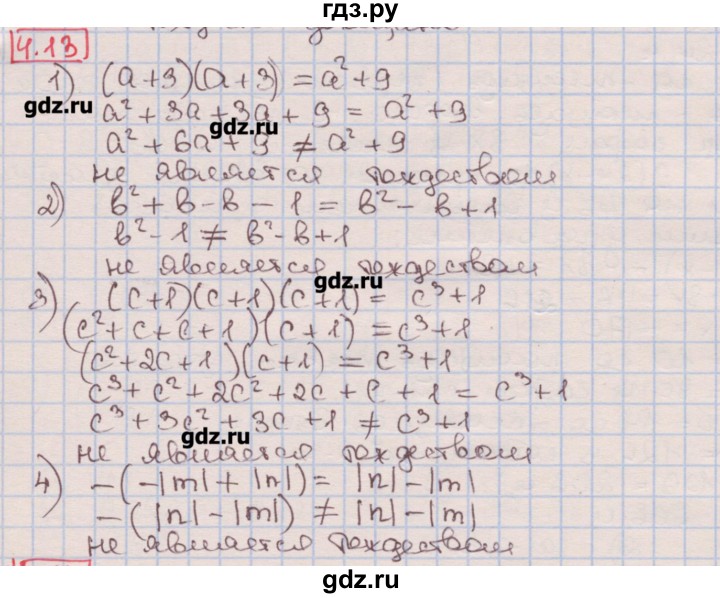 гдз.ру
4.13
1) (a+3)(a+3) = a²+9
gdz.ru
a²+3a+3a+9 = a²+9
gdz.ru
a²+6a+9 ≠ a²+9
не является тождеством
2) в²+в-в-1 = в²-в+1
в²-1 ≠ в²-в+1
не является тождеством
gdz.ru
3) (c+1)(c+1)(c+1) = c³+1
(c²+c+c+1)(c+1) = c³+1
(c²+2c+1)(c+1) = c³+1
c³+c²+2c²+2c+c+1 = c³+1
c³+3c²+3c+1 ≠ c³+1
gdz.ru
не является тождеством
4) -(-|m|+|n|) = |n|-|m|
-(|n|-|m|) ≠ |n|-|m|
gdz.ru
не является тождеством
gdz.ru